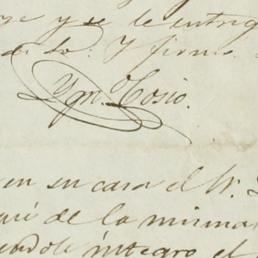 y se le entreg
do. Y firmo.
Ygn. Cosio.
en su casa el Sr.
de la misma
íntegro el